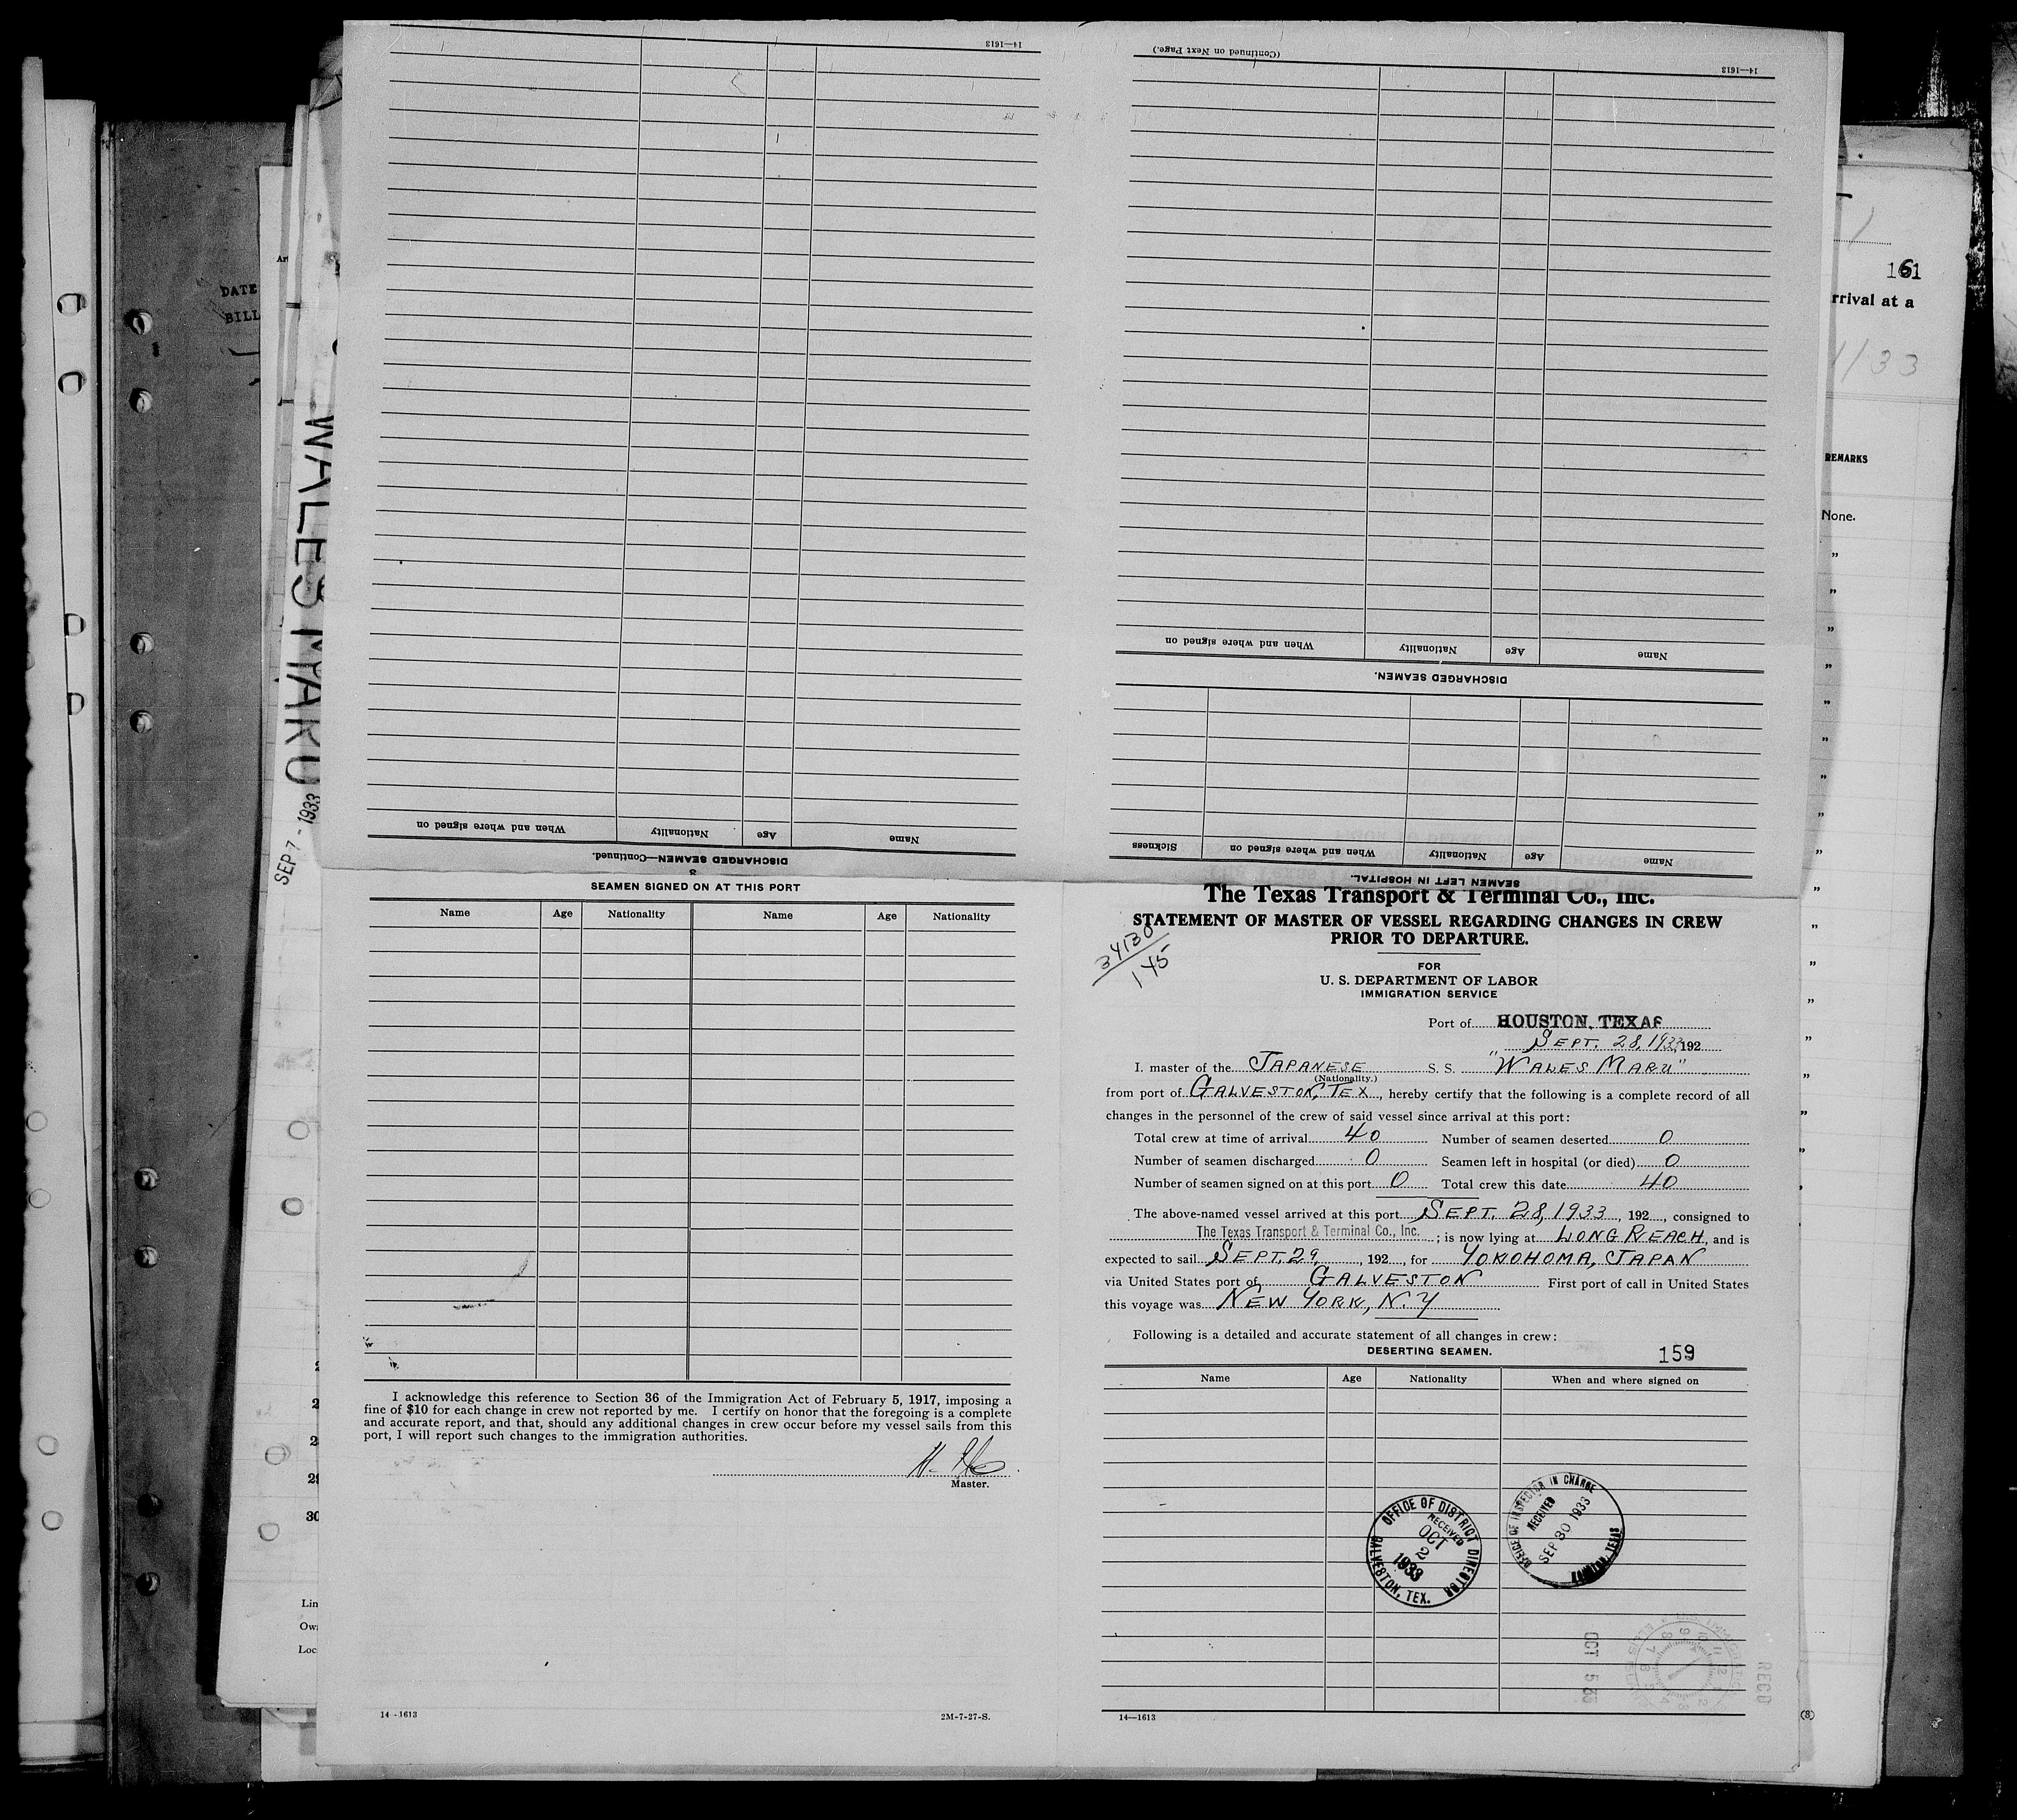 14—1613
(Continued on Next Page.)
14—1613
When and where signed on
Nationality
Age
Name
DISCHARGED SEAMEN.
Name
Age
Nationality
When and where signed on
DISCHARGED SEAMEN—Continued.
Name
Age
Nationality
When and where signed on
Sickness
SEAMEN LEFT IN HOSPITAL.
DATE
BILL
WALES MARU
SEP 7 - 1933
161
rrival at a
1/33
REMARKS
None.
8
SEAMEN SIGNED ON AT THIS PORT
Name Age Nationality Name Age Nationality
I acknowledge this reference to Section 36 of the Immigration Act of February 5, 1917, imposing a
fine of $10 for each change in crew not reported by me. I certify on honor that the foregoing is a complete
and accurate report, and that, should any additional changes in crew occur before my vessel sails from this
port, I will report such changes to the immigration authorities.
Master.
14-1613
2M-7-27-S.
The Texas Transport & Terminal Co., Inc.
STATEMENT OF MASTER OF VESSEL REGARDING CHANGES IN CREW
PRIOR TO DEPARTURE.
34130
145
FOR
U. S. DEPARTMENT OF LABOR
IMMIGRATION SERVICE
Port of HOUSTON, TEXAS
SEPT. 28, 1933 192
I. master of the JAPANESE S. S. "WALES MARU"
(Nationality.)
from port of GALVESTON, TEX, hereby certify that the following is a complete record of all
changes in the personnel of the crew of said vessel since arrival at this port:
Total crew at time of arrival 40 Number of seamen deserted 0
Number of seamen discharged 0 Seamen left in hospital (or died) 0
Number of seamen signed on at this port 0 Total crew this date 40
The above-named vessel arrived at this port SEPT. 28, 1933, 192, consigned to
The Texas Transport & Terminal Co., Inc. ; is now lying at LONG REACH, and is
expected to sail SEPT. 29, 192, for YOKOHOMA, JAPAN
via United States port of GALVESTON First port of call in United States
this voyage was NEW YORK, N.Y
Following is a detailed and accurate statement of all changes in crew:
DESERTING SEAMEN.
159
Name Age Nationality When and where signed on
OFFICE OF DISTRICT DIRECTOR
RECEIVED
OCT
2
1933
GALVESTON, TEX.
OFFICE OF INSPECTOR IN CHARGE
RECEIVED
SEP 30 1933
HOUSTON, TEXAS
OCT 5 33
REC'D
14—1613
(8)
Lin
Own
Loc
30